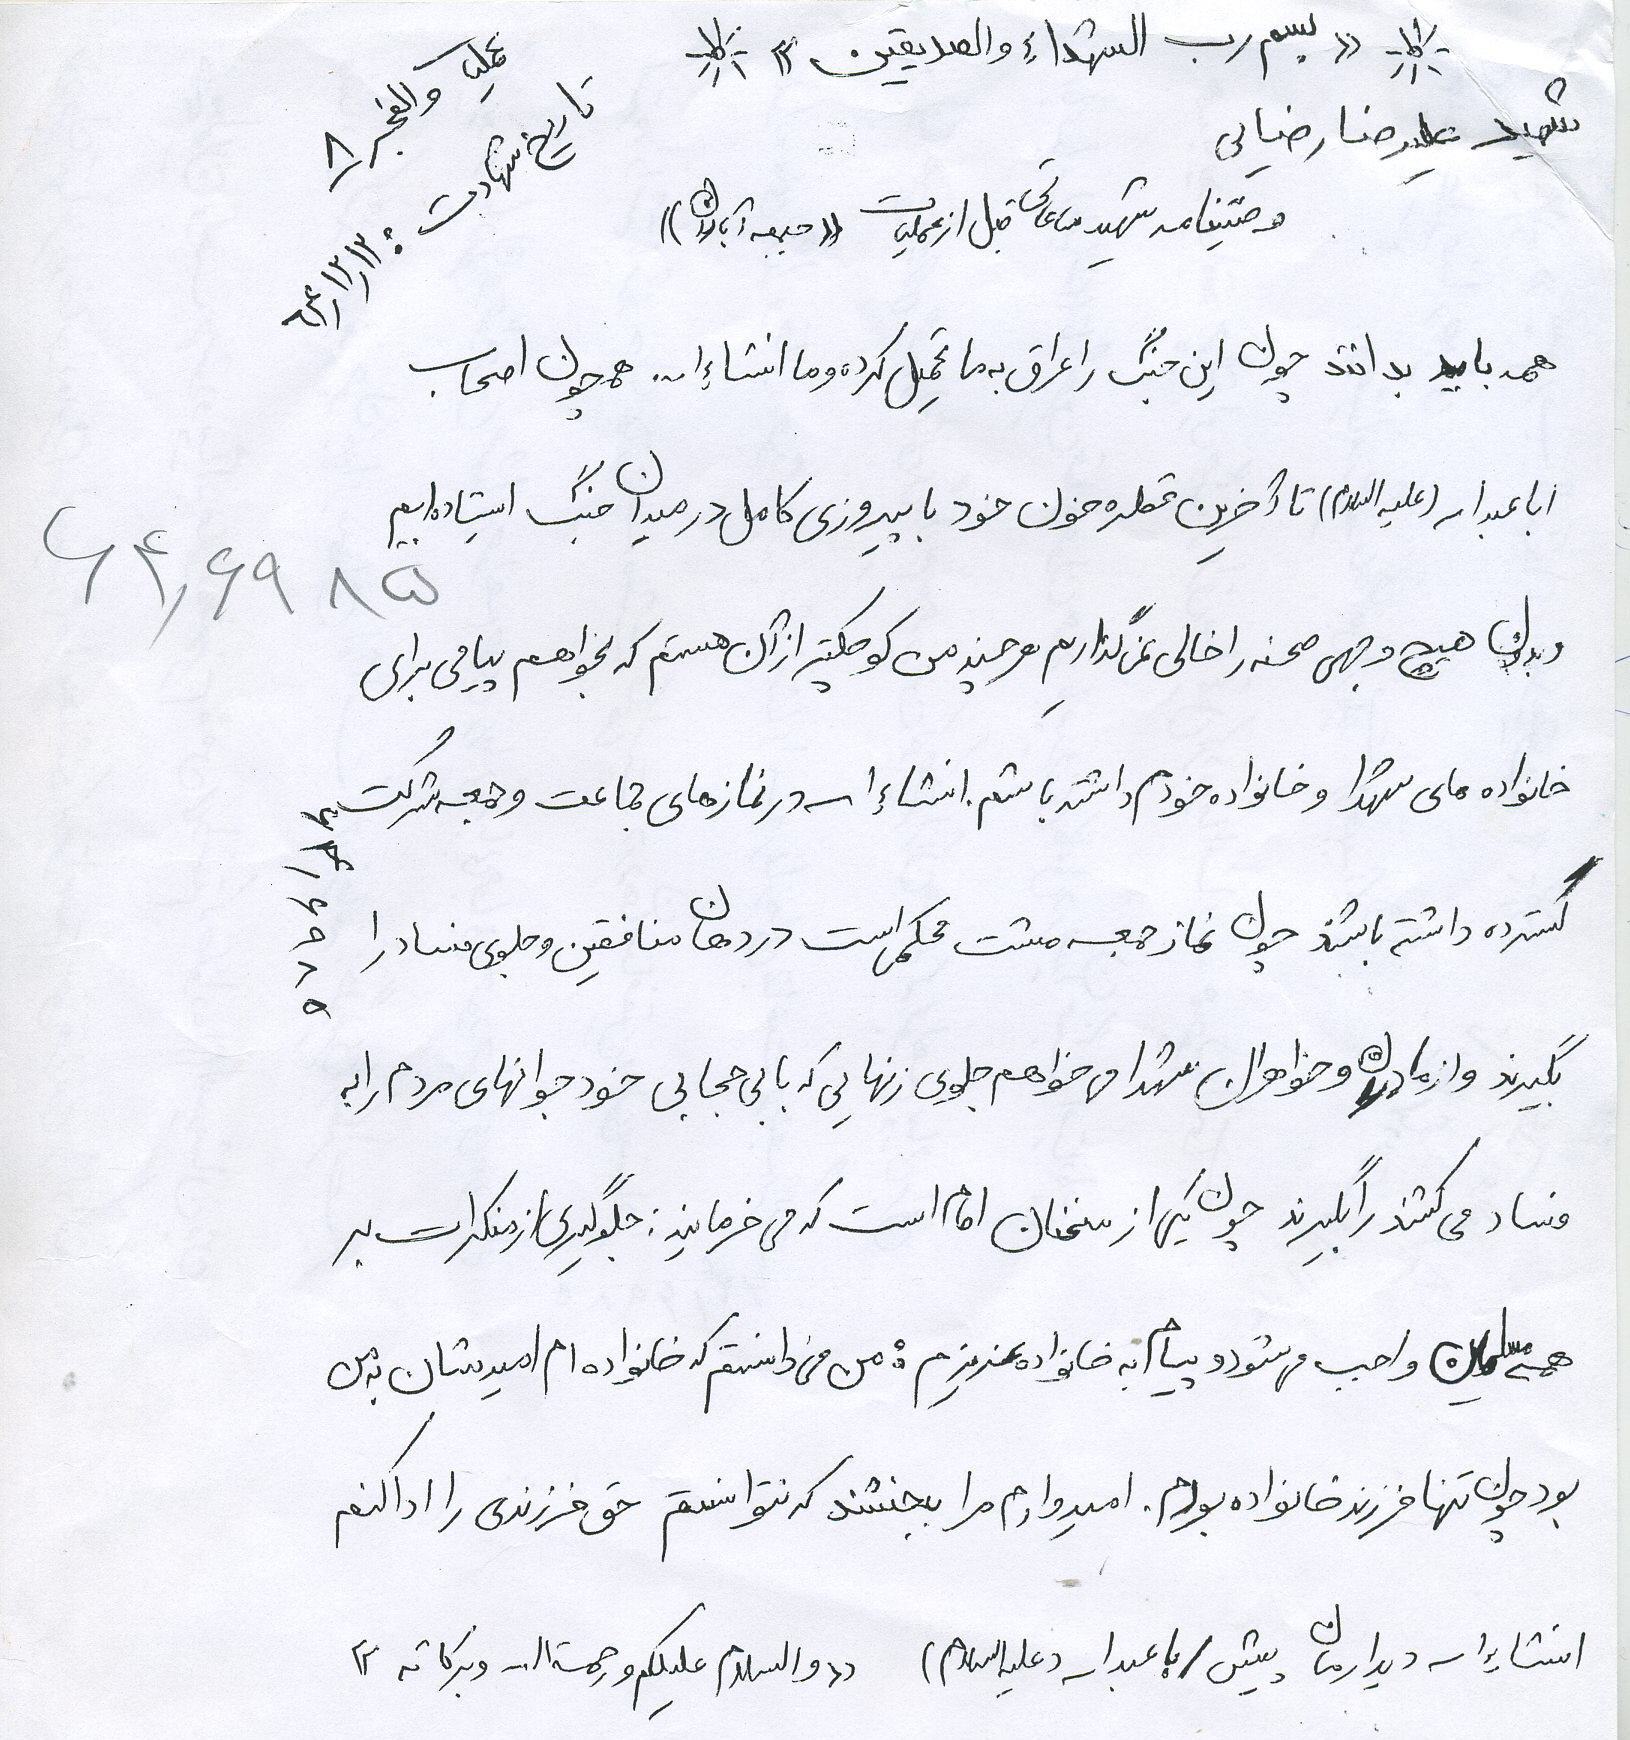 « بسم رب الشهداء والصدیقین »
شهید علیرضا رضایی
عملیات والفجر ۸
تاریخ شهادت: ۶۴/۱۲/۱۳
وصیتنامه شهید ساعاتی قبل از عملیات «جبهه آبادان»
همه باید بدانند چون این جنگ را عراق به ما تحمیل کرده و ما انشاءا... همچون اصحاب
اباعبدا... (علیه السلام) تا آخرین قطره خون خود با پیروزی کامل در میدان جنگ ایستاده‌ایم
۶۴۸۶۹۸۵
و بدون هیچ وجهی صحنه را خالی نمی‌گذاریم هر چند من کوچکتر از آن هستم که بخواهم پیامی برای
خانواده های شهدا و خانواده خودم داشته باشم. انشاءا... در نمازهای جماعت و جمعه شرکت
گسترده داشته باشند چون نماز جمعه مشت محکمی است در دهان منافقین و جلوی فساد را
بگیرند و از مادران و خواهران شهدا می خواهم جلوی زنهایی که با بی حجابی خود جوانهای مردم را به
فساد می کشند را بگیرند چون یکی از سخنان امام است که می فرمایند: جلوگیری از منکرات بر
همه‌ی مسلمین واجب می شود و پیامم به خانواده عزیزم: من می دانستم که خانواده ام امیدشان به من
بود چون تنها فرزند خانواده بودم. امیدوارم مرا ببخشند که نتوانستم حق فرزندی را ادا کنم
انشاءا... دیدارمان پیش اباعبدا... (علیه السلام) «والسلام علیکم و رحمت ا... و برکاته»